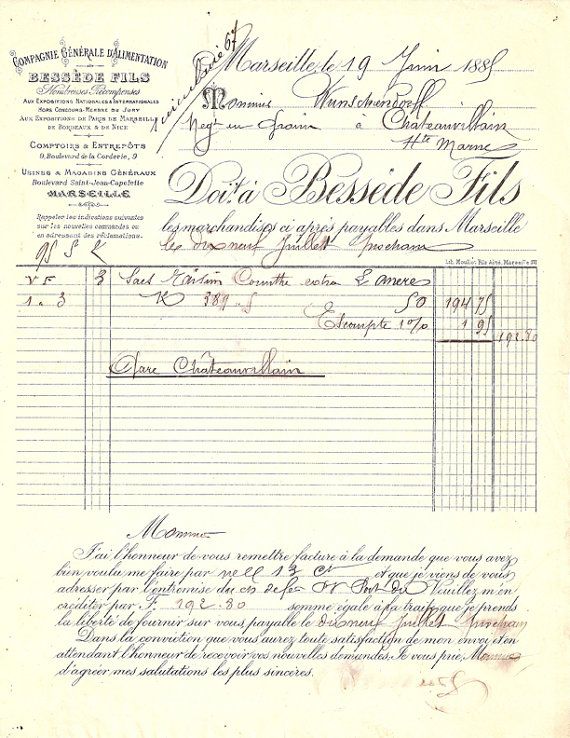 COMPAGNIE GÉNÉRALE D'ALIMENTATION
BESSÈDE FILS
Nombreuses Récompenses
AUX EXPOSITIONS NATIONALES & INTERNATIONALES
HORS CONCOURS-MEMBRE DU JURY
AUX EXPOSITIONS DE PARIS DE MARSEILLE
DE BORDEAUX & DE NICE
COMPTOIRS & ENTREPÔTS
9, Boulevard de la Corderie, 9
USINES & MAGASINS GÉNÉRAUX
Boulevard Saint-Jean-Capelette
MARSEILLE
Rappeler les indications suivantes
sur les nouvelles commandes ou
en adressant des réclamations.
67
Marseille, le 19 Juin 1885
Monsieur Wunschendorff
Negt en Grains à Chateauvillain
Hte Marne
Doit à Bessède Fils
les marchandises ci après payables dans Marseille
les dix neuf Juillet prochain
95 S K
Lith. Moullot Fils Aîné, Marseille
V F 3 Sacs Raisin Corinthe extra
1 à 3 K 389.5 50 194 75
Escompte 1% 1 95
192.80
Gare Châteauvillain
Monsieur
J'ai l'honneur de vous remettre facture à la demande que vous avez
bien voulu me faire par 13 ct et que je viens de vous
adresser par l'entremise du ch de fer Veuillez m'en
créditer par F. 192.80 somme égale à la traite que je prends
la liberté de fournir sur vous payable le dix neuf juillet prochain
Dans la conviction que vous aurez toute satisfaction de mon envoi & en
attendant l'honneur de recevoir vos nouvelles demandes. Je vous prie, Monsieur
d'agréer mes salutations les plus sincères.